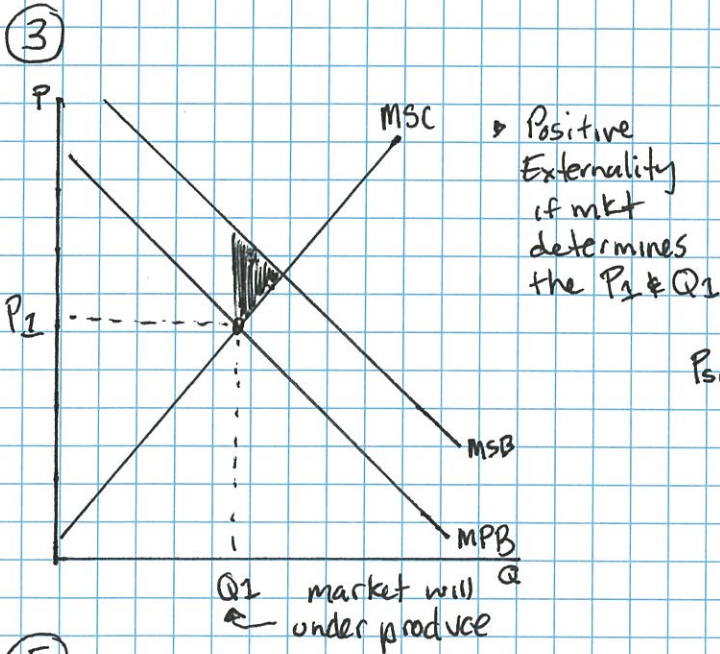 3
P
MSC
▸ Positive
Externality
if mkt
determines
the P1 & Q1
P1
MSB
MPB
Q
Q1 market will
← under produce